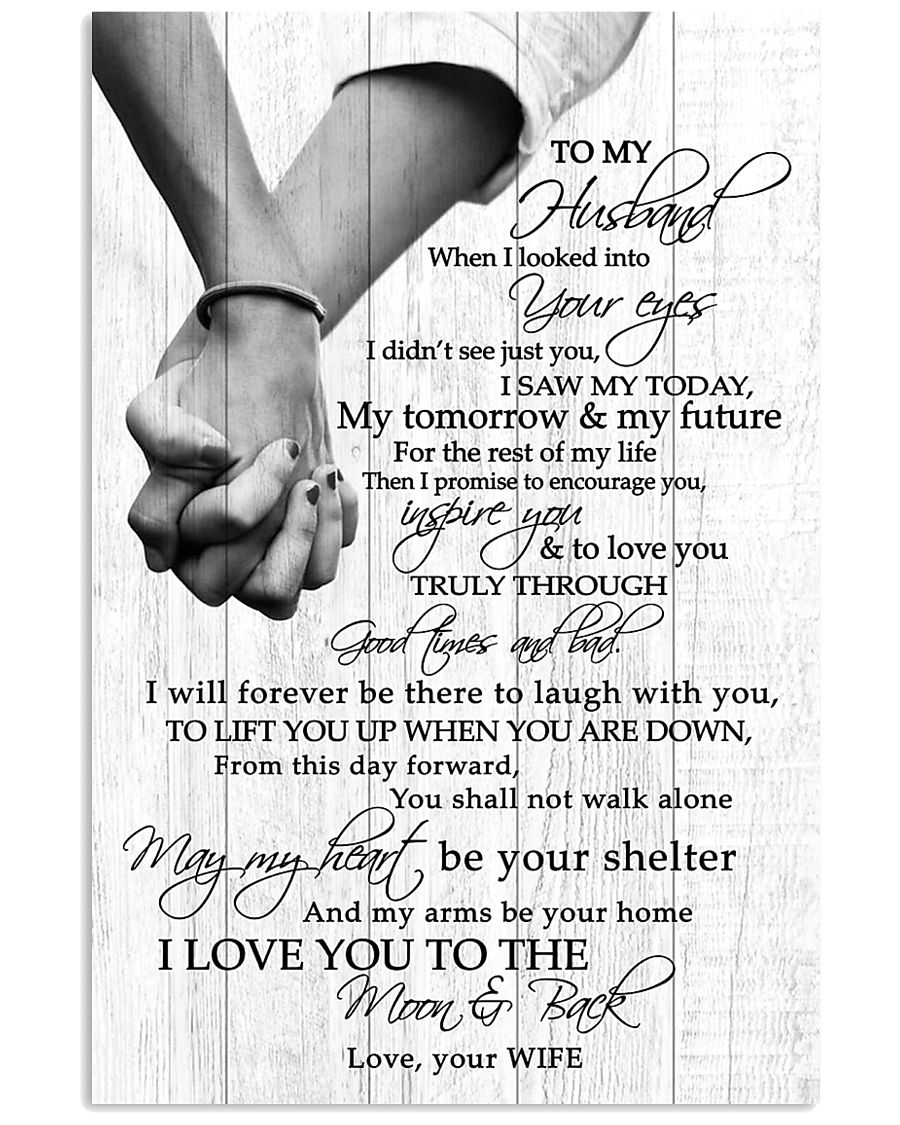 TO MY
Husband
When I looked into
Your eyes
I didn't see just you,
I SAW MY TODAY,
My tomorrow & my future
For the rest of my life
Then I promise to encourage you,
inspire you
& to love you
TRULY THROUGH
Good times and bad.
I will forever be there to laugh with you,
TO LIFT YOU UP WHEN YOU ARE DOWN,
From this day forward,
You shall not walk alone
May my heart be your shelter
And my arms be your home
I LOVE YOU TO THE
Moon & Back
Love, your WIFE